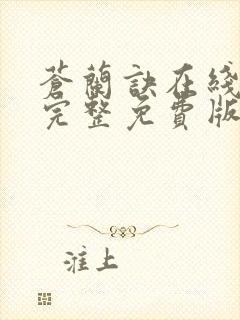 蒼蘭訣在綫
完整免費版
淮上